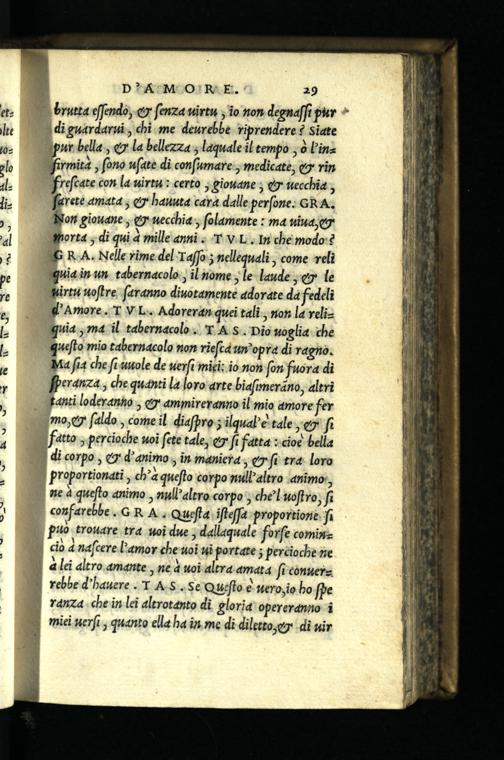 D'AMORE. 29
brutta essendo, & senza virtu, io non degnassi pur
di guardarui, chi me deurebbe riprendere? Siate
pur bella, & la bellezza, laquale il tempo, ò l'in=
firmità, sono usate di consumare, medicate, & rin
frescate con la virtu: certo, giouane, & uecchia,
sarete amata, & hauuta cara dalle persone. GRA.
Non giouane, & uecchia, solamente: ma uiua, &
morta, di qui à mille anni. TVL. In che modo?
GRA. Nelle rime del Tasso; nellequali, come reli
quia in un tabernacolo, il nome, le laude, & le
uirtu uostre saranno diuotamente adorate da fedeli
d'Amore. TVL. Adoreran quei tali, non la reli=
quia, ma il tabernacolo. TAS. Dio uoglia che
questo mio tabernacolo non riesca un'opra di ragno.
Ma sia che si uuole de uersi miei: io non son fuora di
speranza, che quanti la loro arte biasimerāno, altri
tanti loderanno, & ammireranno il mio amore fer
mo, & saldo, come il diaspro; ilqual'è tale, & si
fatto, percioche uoi sete tale, & si fatta: cioè bella
di corpo, & d'animo, in maniera, & si tra loro
proportionati, ch'à questo corpo null'altro animo,
ne à questo animo, null'altro corpo, che'l uostro, si
confarebbe. GRA. Questa istessa proportione si
può trouare tra uoi due, dallaquale forse comin=
ciò à nascere l'amor che uoi ui portate; percioche ne
à lei altro amante, ne à uoi altra amata si conuer=
rebbe d'hauere. TAS. Se Questo è uero, io ho spe
ranza che in lei altrotanto di gloria opereranno i
miei uersi, quanto ella ha in me di diletto, & di uir